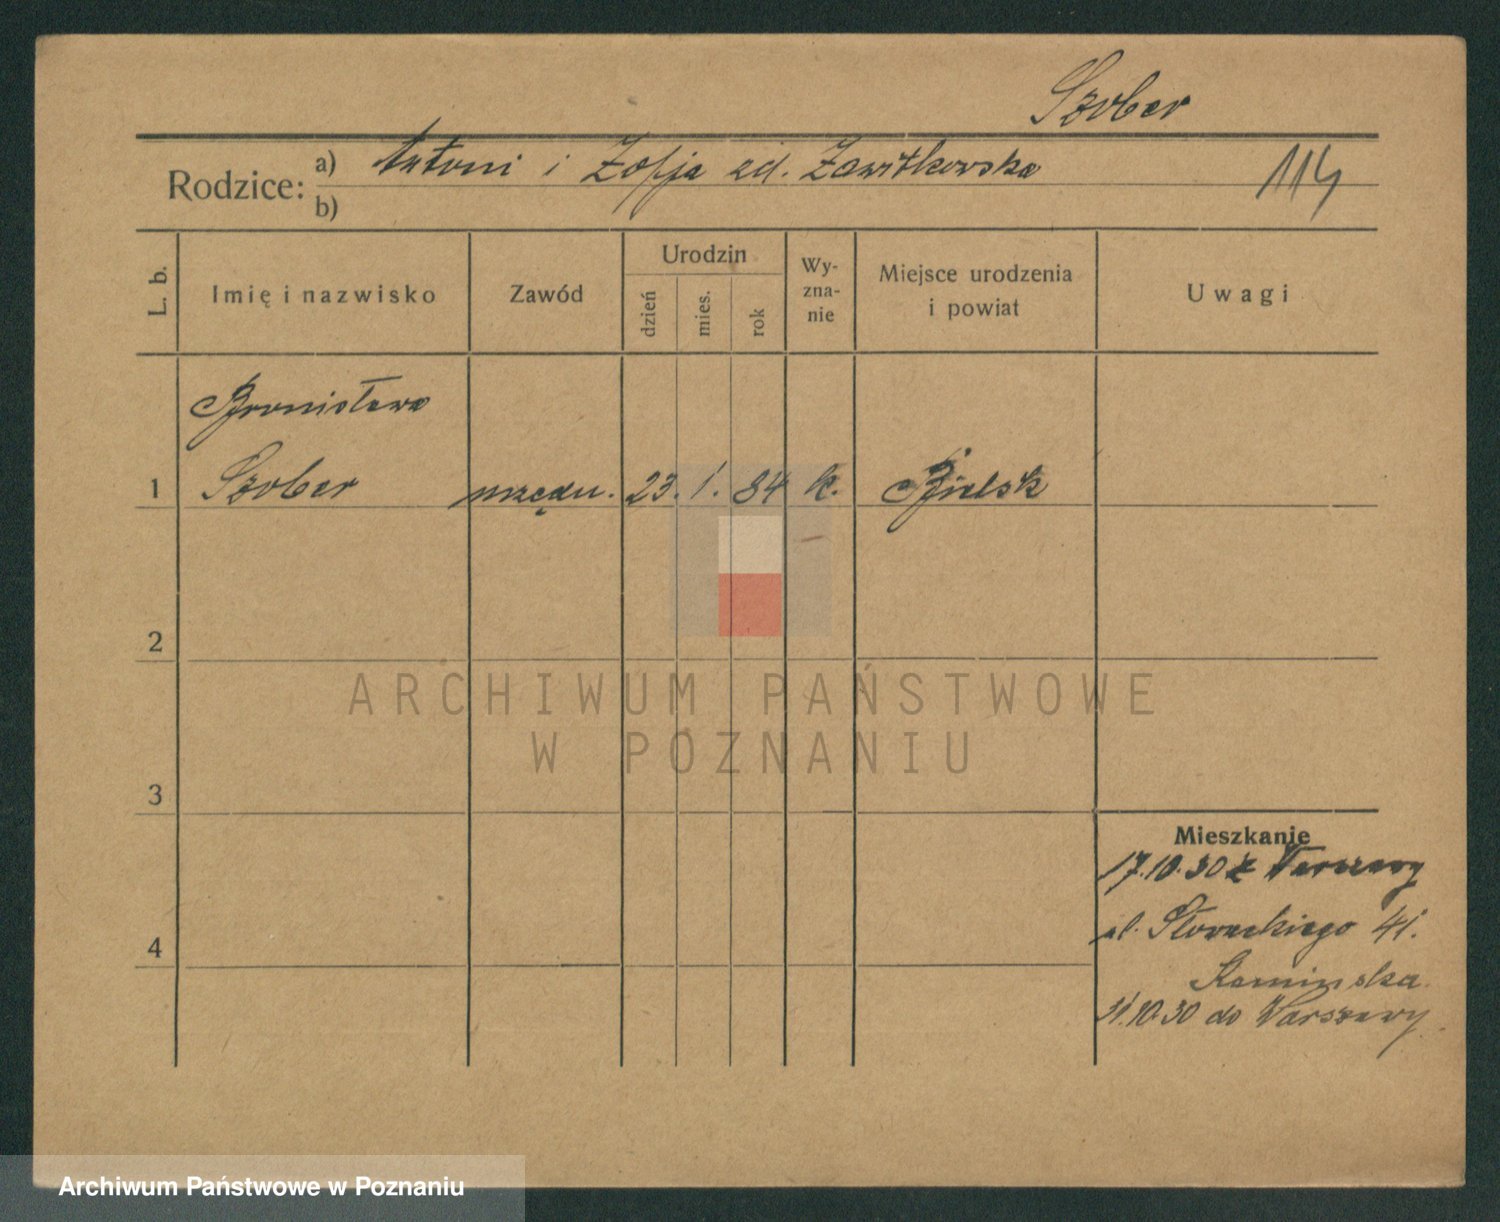 Szober
Rodzice: a) Antoni i Zofja zd. Zawitkowska
b)
114
L. b. Imię i nazwisko Zawód Urodzin dzień mies. rok Wyznanie Miejsce urodzenia i powiat Uwagi
Bronisława
1 Szober urzędn. 23. 1. 84 k. Bielsk
2
ARCHIWUM PAŃSTWOWE
W POZNANIU
3
Mieszkanie
17.10.30 z Warszawy
4 ul. Słowackiego 41.
Kaminska
31.10.30 do Warszawy
Archiwum Państwowe w Poznaniu